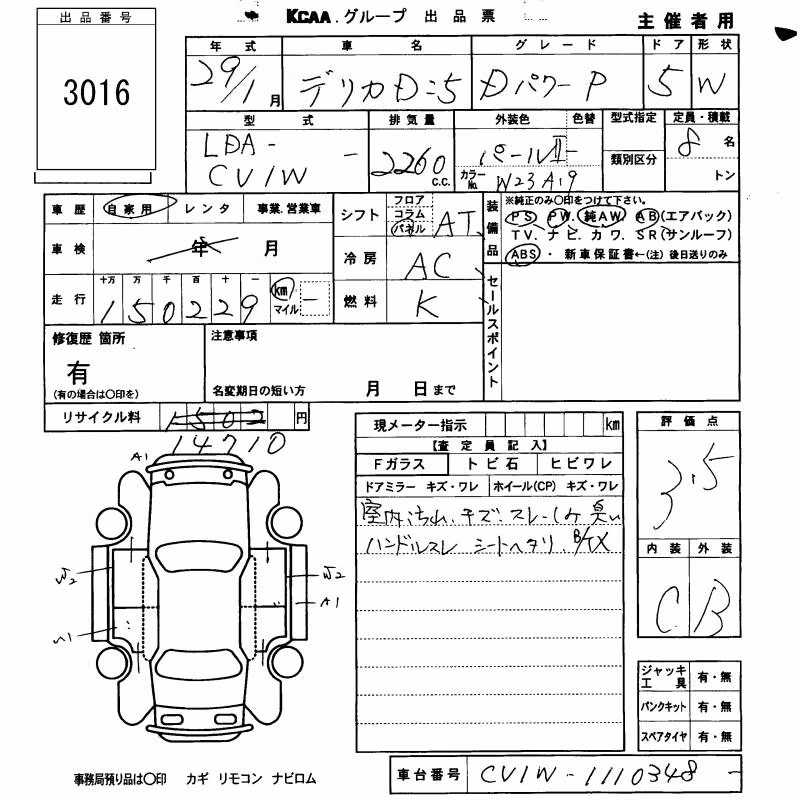 出品番号
3016
KCAA.グループ 出品票
主催者用
年式 車名 グレード ドア 形状
29/1月 デリカD:5 DパワーP 5 W
型式 排気量 外装色 色替 型式指定 定員・積載
LDA-
CV1W - 2260 c.c. パールII 類別区分 8名
カラーNo. W23A19 トン
車歴 自家用 レンタ 事業.営業車
シフト フロア コラム パネル AT
装備品 ※純正のみ〇印をつけて下さい。
PS PW. 純AW AB(エアバック)
TV. ナビ. カワ. SR(サンルーフ)
ABS・ 新車保証書←(注)後日送りのみ
車検 年 月
冷房 AC
走行 十万 万 千 百 十 一
150229 km マイル -
燃料 K
セールスポイント
修復歴 箇所
有
(有の場合は〇印を)
注意事項
名変期日の短い方 月 日まで
リサイクル料 1502 円
14710
現メーター指示 km
【査定員記入】
Fガラス トビ石 ヒビワレ
ドアミラー キズ・ワレ ホイール(CP) キズ・ワレ
室内汚れ.キズ.スレ.シケ臭い
ハンドルスレ シートヘタリ
評価点
3.5
内装 外装
C. B
A1
W2
W2
A1
ジャッキ工具 有・無
パンクキット 有・無
スペアタイヤ 有・無
事務局預り品は〇印 カギ リモコン ナビロム
車台番号 CV1W-1110348-